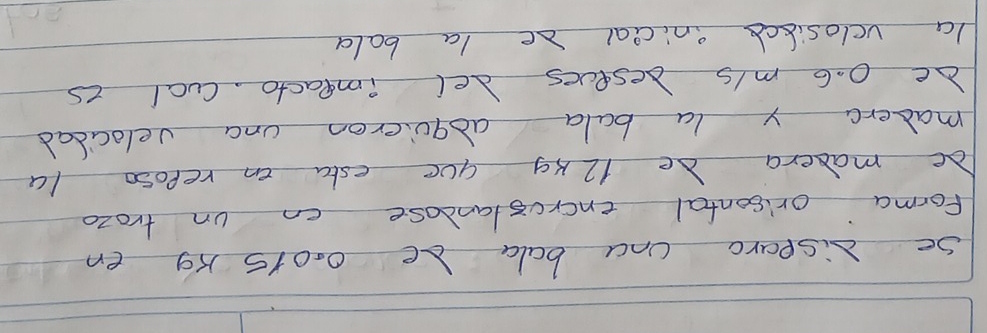 Se dispara una bala de 0.015 kg en
forma orisontal encrustandose en un trozo
de madera de 12 kg que esta en reposo la
madera y la bala adquieron una velocidad
de 0.6 m/s despues del impacto. Cual es
la velosidad inicial de la bala